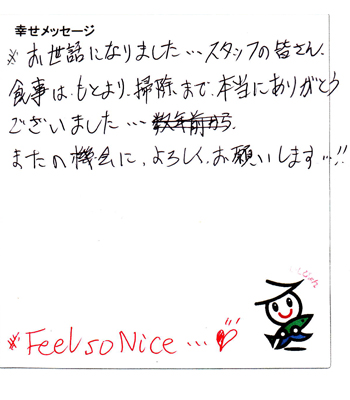 幸せメッセージ
※お世話になりました…スタッフの皆さん、
食事は、もとより、掃除まで、本当にありがとう
ございました… 数年前から、
またの機会に、よろしく、お願いします…!!
※Feel so Nice…♡